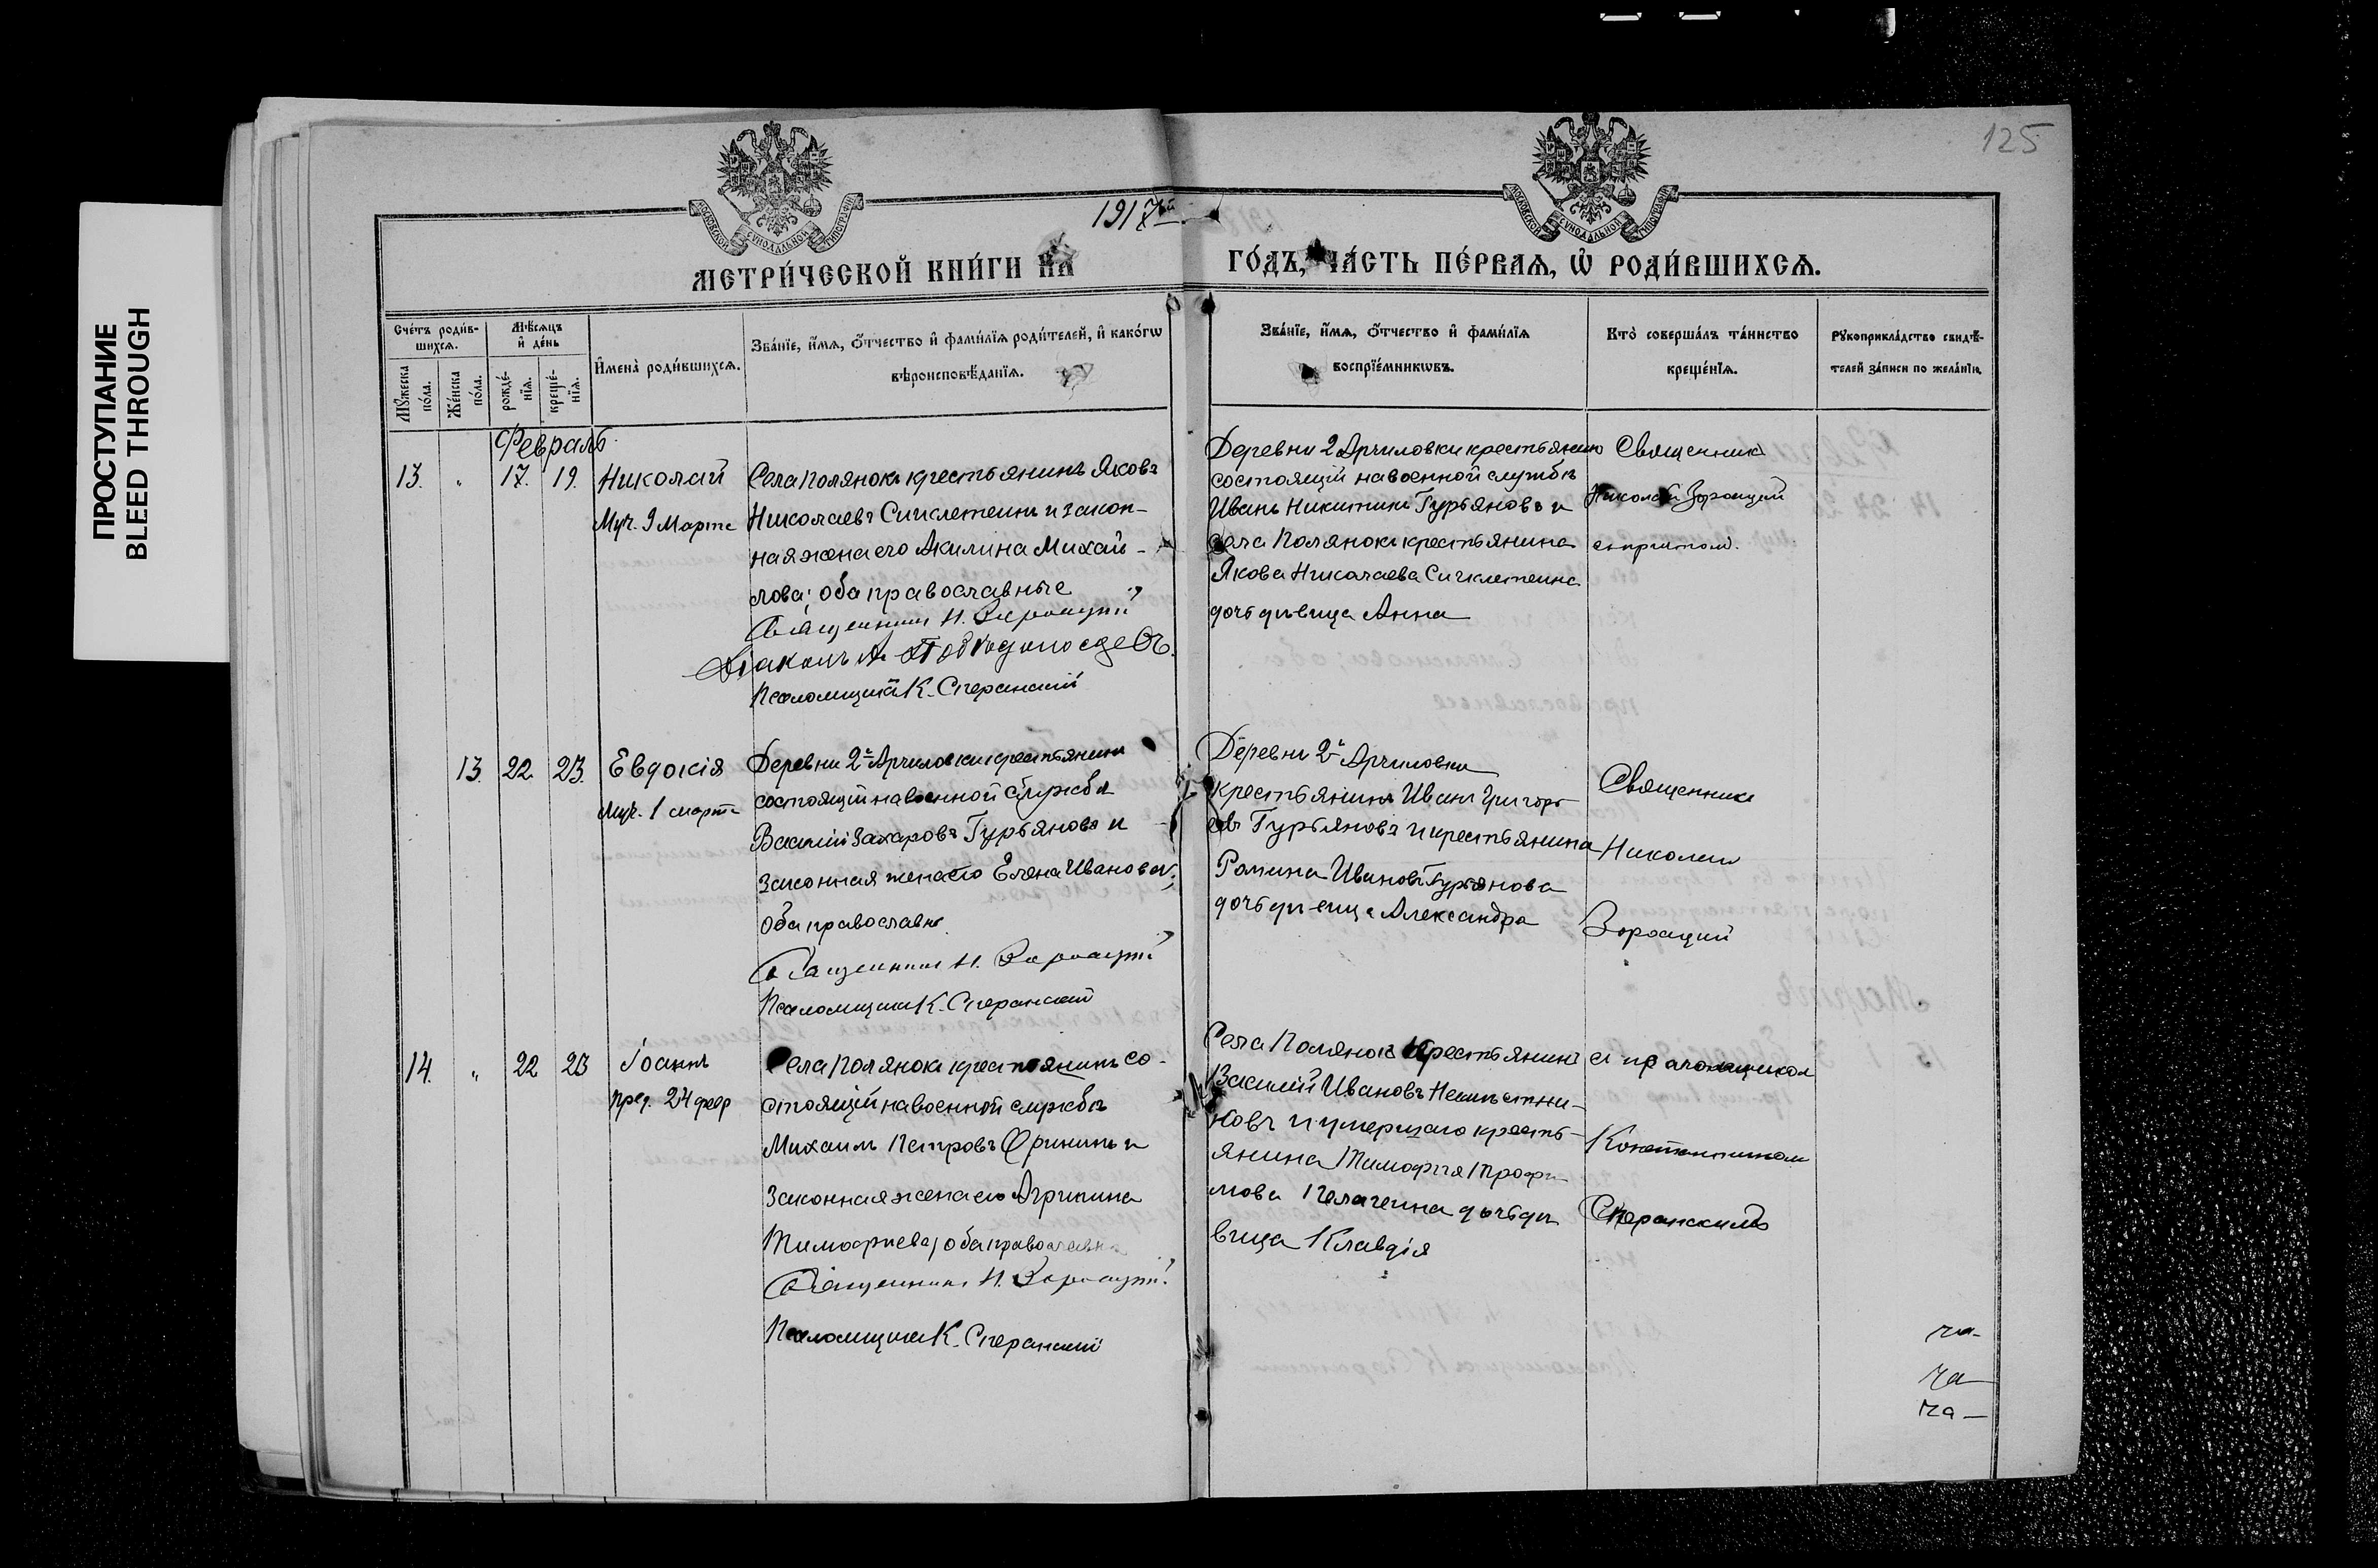 ПРОСТУПАНИЕ
BLEED THROUGH
125
МОСКОВСКОЙ СѴНОДАЛЬНОЙ ТИПОГРАФІИ
МОСКОВСКОЙ СѴНОДАЛЬНОЙ ТИПОГРАФІИ
1917
МЕТРИ́ЧЕСКОЙ КНИ́ГИ НА
ГО́ДЪ, ЧА́СТЬ ПЕ́РВАѦ, Ѡ҆ РОДИ́ВШИХСѦ.
Сче́тъ роди́в-
шихсѧ.
Мꙋ́жеска по́ла.
Же́нска по́ла.
Мѣ́сѧцъ и҆ де́нь
рожде́-
нїѧ.
креще́-
нїѧ.
И҆мена̀ роди́вшихсѧ.
Зва́нїе, и҆́мѧ, ѻ҆́тчество и҆ фами́лїѧ роди́телей, и҆ како́гѡ
вѣроисповѣ́данїѧ.
Зва́нїе, и҆́мѧ, ѻ҆́тчество и҆ фами́лїѧ
воспрїе́мникѡвъ.
Кто̀ соверша́лъ та́инство
креще́нїѧ.
Рꙋкоприкла́дство свидѣ́-
телей за́писи по жела́нїю.
Февраль
13. " 17. 19. Николай
Муч. 9 Марта
Села Полянокъ крестьянинъ Яковъ
Николаевъ Сиклетеинъ и закон-
ная жена его Акилина Михай-
лова; оба православные
Священникъ Н.
Діаконъ А.
Псаломщикъ К. Сперанскій
Деревни 2 Арчиловки крестьянинъ
состоящій на военной службѣ
Иванъ Никитинъ Гурьяновъ и
села Полянокъ крестьянина
Якова Николаева Сиклетеина
дочь дѣвица Анна
Священникъ
Николай
съ причтомъ.
13. 22 23. Евдокія
Муч. 1 марта
Деревни 2й Арчиловки крестьянинъ
состоящій на военной службѣ
Василій Захаровъ Гурьяновъ и
законная жена его Елена Иванова;
оба православные
Священникъ Н.
Псаломщикъ К. Сперанскій
Деревни 2й Арчиловки
крестьянинъ Иванъ Григорь
евъ Гурьяновъ и крестьянина
Романа Иванова Гурьянова
дочь дѣвица Александра
Священникъ
Николай
14. " 22 23 Іоаннъ
пред. 24 февр
Села Полянокъ крестьянинъ со-
стоящій на военной службѣ
Михаилъ Петровъ и
законная жена его Агрипина
Тимофѣева; оба православные
Священникъ Н.
Псаломщикъ К. Сперанскій
Села Полянокъ крестьянинъ
Василій Ивановъ
новъ и умершаго кресть-
янина Тимофѣя Трофи-
мова дочь дѣ
вица Клавдія
съ псаломщикомъ
Константиномъ
Сперанскимъ